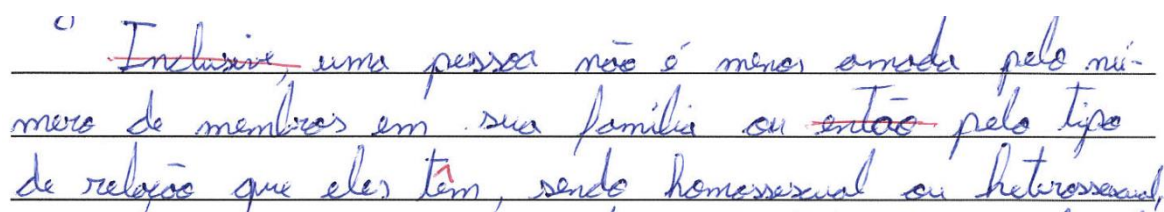 Inclusive, uma pessoa não é menos amada pelo nú-
mero de membros em sua família ou então pelo tipo
de relação que eles têm, sendo homossexual ou heterossexual,